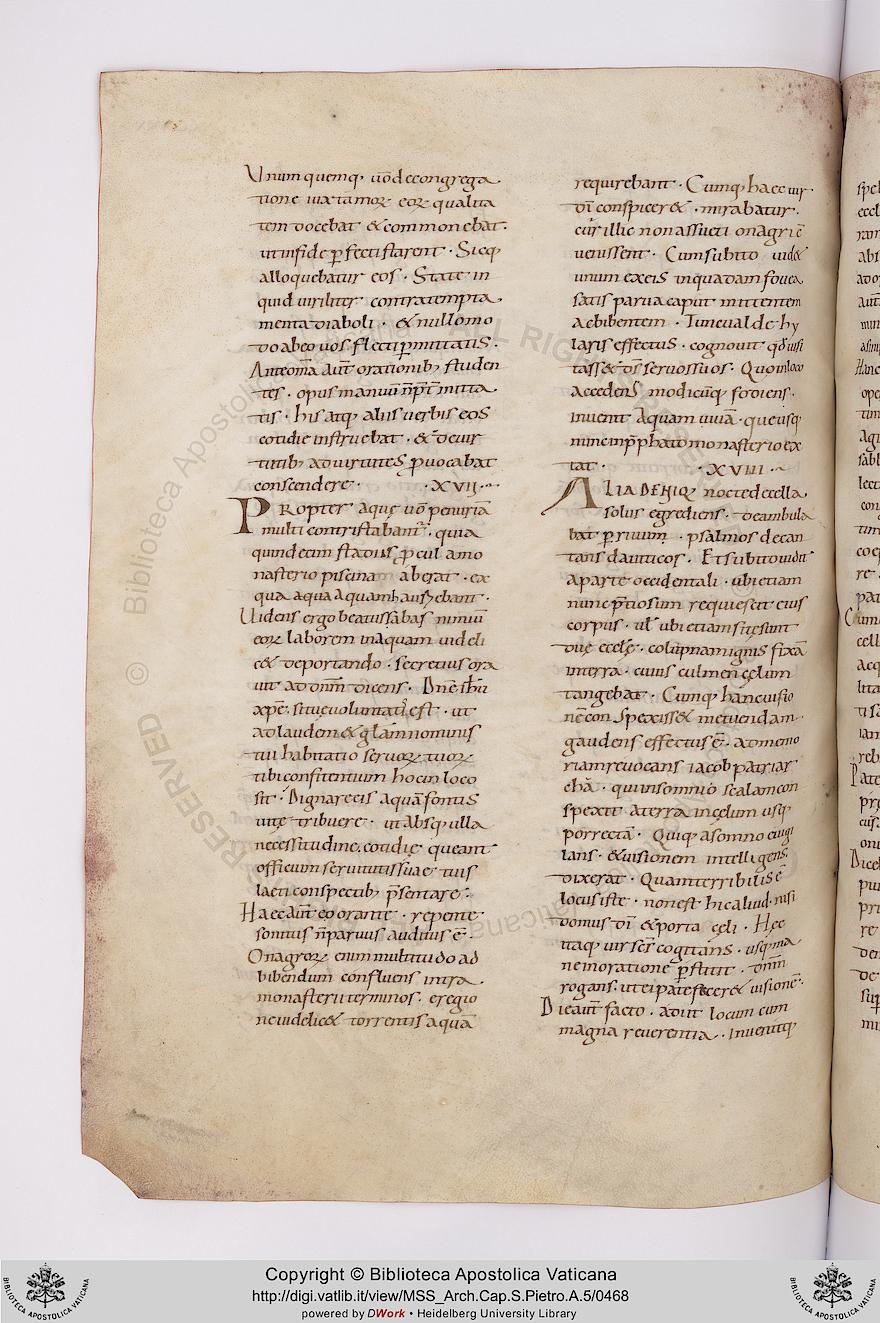 Unumquemq; uo de congrega
tione uitā tā morꝝ eorꝝ qualita
tem docebat & commonebat·
ut in fide ꝑfecti starent· Sicq;
alloquebatur eos· State in
quid uiriliter contra tempta
menta diaboli· & nullo mo
do ab eo uos flecti ꝑmittatis·
Ante oīna aūt orationib; studen
tes· opus manuū n̄ p̄tmitta
tis· his atq; aliis uerbis eos
cotidie instruebat· & de uir
tutib; ad uirtutes ꝓuocabat
conscendere· ·XVII·
PROPTER aque uō penuriā
multi contristabant̄· quia
quindecim stadiis ꝓcul a mo
nasterio piscina aberat· ex
qua aqua aquam hauriebant·
Uidens ergo beatus sabas nimiū
eorꝝ laborem in aquam uideli
c& deportando· secretius ora
uit ad dnm̄ dicens· Dn̄e ih̄u
xp̄e· si tue uoluntati est· ut
ad laudem & gl̄am nominis
tui habitatio seruorꝝ tuorꝝ
tibi confitentium hoc in loco
sit· Dignare eis aquā fontis
uite tribuere· ut absq; ulla
necessitudine. cotidie queant
officium seruitutis sue tuis
laeti conspectib; p̄sentare·
Haec aūt eo orante· repente
sonitus n̄ paruus auditus ē·
Onagrorꝝ enim multitudo ad
bibendum confluens intra
monasterii terminos· e regio
ne uidelic& torrentis aquā
requirebant· Cumq; haec uir
dī conspicer&· mirabatur·
cur illic non assueti onagri ē
uenissent· Cum subito uid&
unum ex eis in quadam fouea
satis parua caput mittentem
ac bibentem· Tunc ualde hy
laris effectus· cognouit qd̄ uisi
tass& dn̄s seruos suos· Quo in loco
accedens modicūq; fodiens·
inuenit aquam uiuā· que usq;
nunc in p̄phato monasterio ex
tat· ·XVIII·
ALIA DENIQ; nocte de cella
solus egrediens· deambula
bat ꝑ riuum· psalmos decan
tans dauiticos· Et subito uidit
a parte occidentali· ubi etiam
nunc p̄tiosum requiescit eius
corpus· ul̄ ubi etiam site sunt
due ecclę· columpnam ignis fixā
in terra· cuius culmen celum
tangebat· Cumq; hanc uisio
nē conspexiss& metuendam·
gaudens effectus ē· ad memo
riam reuocans iacob patriar
chā· qui in somnio scalam con
spexit a terra in celum usq;
porrectā· Quiq; a somno euigi
lans· & uisionem intelligens·
dixerat· Quam terribilis ē
locus iste· non est hic aliud· nisi
domus dī & porta celi· Hęc
itaq; uir sc̄s cogitans· usq; ma
ne in oratione ꝑstitit· dnm̄
rogans· ut ei patefacer& uisionē·
Die aūt facto· adiit locum cum
magna reuerentia· inuenitq;
Copyright © Biblioteca Apostolica Vaticana
http://digi.vatlib.it/view/MSS_Arch.Cap.S.Pietro.A.5/0468
powered by DWork • Heidelberg University Library